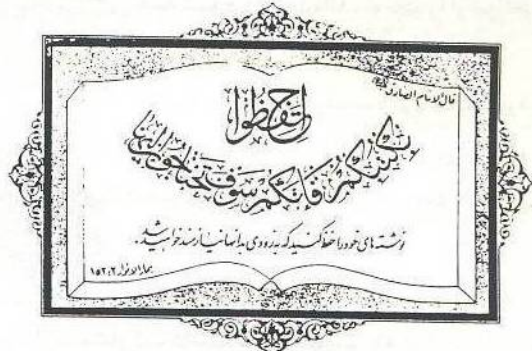 قال الامام الصادق
احتفظوا
بكتبكم فانكم سوف تحتاجون اليها
نوشته های خود را حفظ کنید که به زودی بدانها نیازمند خواهید شد.
بحارالانوار ۲، ۱۵۲